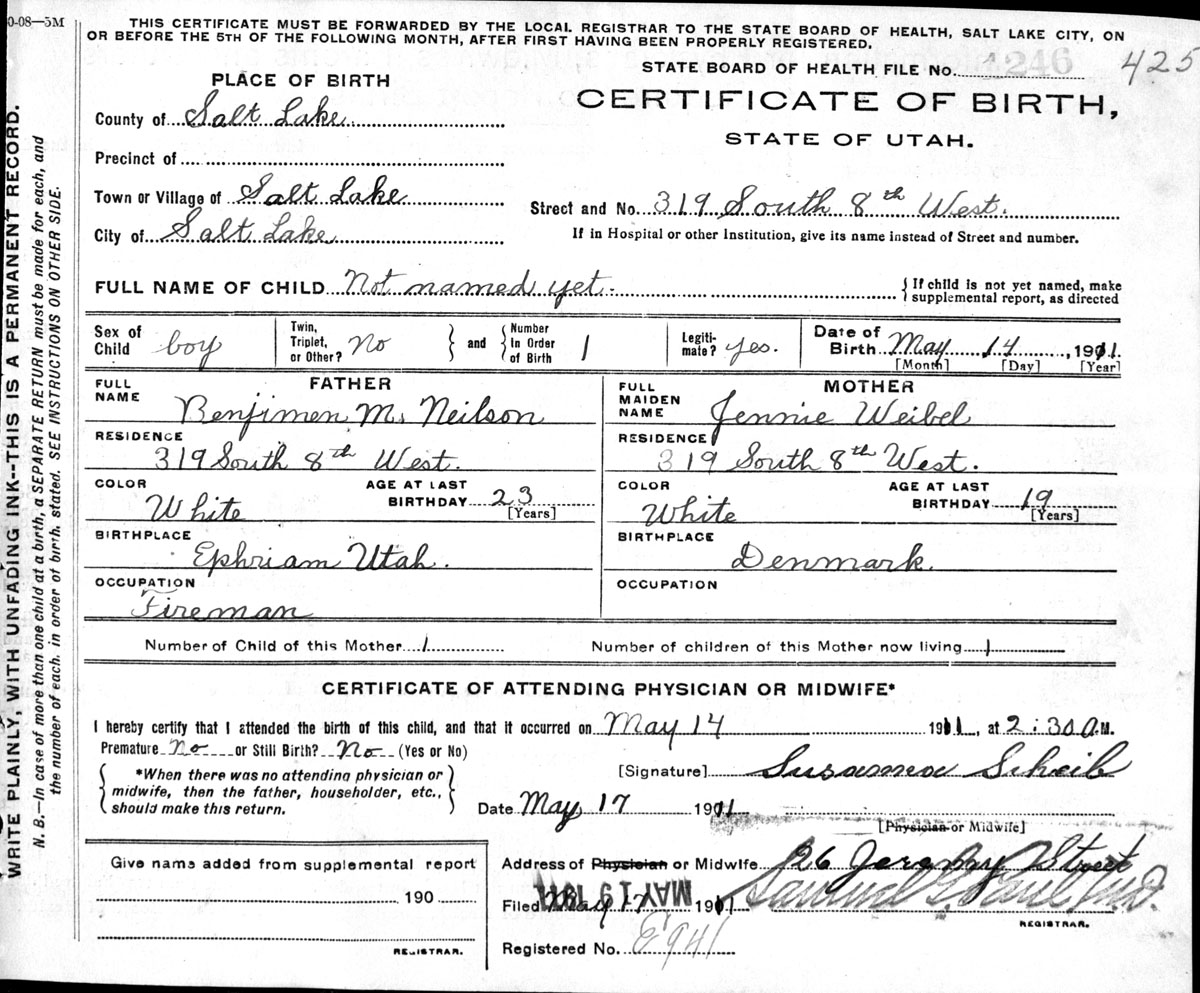 0-08—5M
THIS CERTIFICATE MUST BE FORWARDED BY THE LOCAL REGISTRAR TO THE STATE BOARD OF HEALTH, SALT LAKE CITY, ON
OR BEFORE THE 5TH OF THE FOLLOWING MONTH, AFTER FIRST HAVING BEEN PROPERLY REGISTERED.
425
PLACE OF BIRTH
STATE BOARD OF HEALTH FILE NO. 1246
CERTIFICATE OF BIRTH,
STATE OF UTAH.
County of Salt Lake
Precinct of
Town or Village of Salt Lake
Street and No. 319 South 8th West.
City of Salt Lake
If in Hospital or other Institution, give its name instead of Street and number.
FULL NAME OF CHILD Not named yet. {If child is not yet named, make
supplemental report, as directed
Sex of Child boy
Twin, Triplet, or Other? No
and
Number In Order of Birth 1
Legitimate? yes.
Date of Birth May 14, 1911.
[Month] [Day] [Year]
FATHER
FULL NAME Benjimen M. Neilson
RESIDENCE 319 South 8th West.
COLOR White AGE AT LAST BIRTHDAY 23 [Years]
BIRTHPLACE Ephriam Utah.
OCCUPATION Fireman
MOTHER
FULL MAIDEN NAME Jennie Weibel
RESIDENCE 319 South 8th West.
COLOR White AGE AT LAST BIRTHDAY 19 [Years]
BIRTHPLACE Denmark.
OCCUPATION
Number of Child of this Mother 1 Number of children of this Mother now living 1
CERTIFICATE OF ATTENDING PHYSICIAN OR MIDWIFE*
I hereby certify that I attended the birth of this child, and that it occurred on May 14 1911, at 2:30 a.M.
Premature No or Still Birth? No (Yes or No)
{*When there was no attending physician or
midwife, then the father, householder, etc.,
should make this return.}
[Signature] Susanna Scheib
Date May 17 1911
[Physician or Midwife]
Give name added from supplemental report
190
REGISTRAR.
Address of Physician or Midwife 126 Jeremy Street
Filed May 17 1911
MAY 19 1911
Samuel G. Paul M.D.
REGISTRAR.
Registered No. E941
WRITE PLAINLY, WITH UNFADING INK--THIS IS A PERMANENT RECORD.
N. B.—In case of more than one child at a birth, a SEPARATE RETURN must be made for each, and
the number of each, in order of birth, stated. SEE INSTRUCTIONS ON OTHER SIDE.